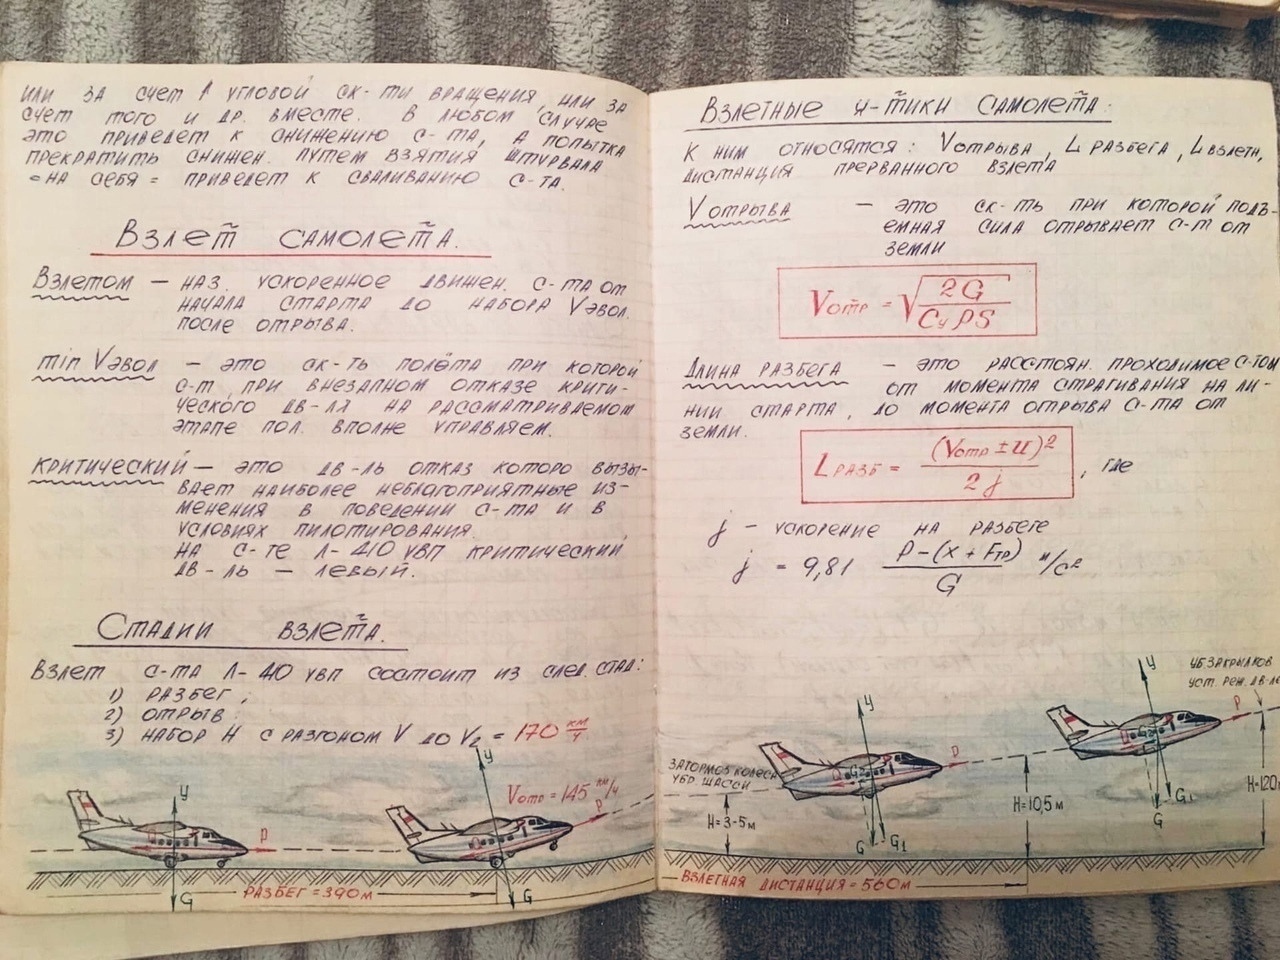 ИЛИ ЗА СЧЕТ ↑ УГЛОВОЙ СК-ТИ ВРАЩЕНИЯ, ИЛИ ЗА
СЧЕТ ТОГО И ДР. ВМЕСТЕ. В ЛЮБОМ СЛУЧАЕ
ЭТО ПРИВЕДЕТ К СНИЖЕНИЮ С-ТА, А ПОПЫТКА
ПРЕКРАТИТЬ СНИЖЕН. ПУТЕМ ВЗЯТИЯ ШТУРВАЛА
=НА СЕБЯ= ПРИВЕДЕТ К СВАЛИВАНИЮ С-ТА.
ВЗЛЕТ САМОЛЕТА.
ВЗЛЕТОМ — НАЗ. УСКОРЕННОЕ ДВИЖЕН. С-ТА ОТ
НАЧАЛА СТАРТА ДО НАБОРА Vэвол.
ПОСЛЕ ОТРЫВА.
min Vэвол — ЭТО СК-ТЬ ПОЛЁТА ПРИ КОТОРОЙ
С-Т ПРИ ВНЕЗАПНОМ ОТКАЗЕ КРИТИ-
ЧЕСКОГО ДВ-ЛЯ НА РАССМАТРИВАЕМОМ
ЭТАПЕ ПОЛ. ВПОЛНЕ УПРАВЛЯЕМ.
КРИТИЧЕСКИЙ — ЭТО ДВ-ЛЬ ОТКАЗ КОТОРО ВЫЗЫ-
ВАЕТ НАИБОЛЕЕ НЕБЛАГОПРИЯТНЫЕ ИЗ-
МЕНЕНИЯ В ПОВЕДЕНИИ С-ТА И В
УСЛОВИЯХ ПИЛОТИРОВАНИЯ.
НА С-ТЕ Л-410 УВП КРИТИЧЕСКИЙ
ДВ-ЛЬ — ЛЕВЫЙ.
СТАДИИ ВЗЛЕТА.
ВЗЛЕТ С-ТА Л-410 УВП СОСТОИТ ИЗ СЛЕД. СТАД:
1) РАЗБЕГ;
2) ОТРЫВ
3) НАБОР Н С РАЗГОНОМ V ДО V₂ = 170 КМ/Ч
У
Р
G
РАЗБЕГ = 390 М
У
Vотр = 145 КМ/Ч
Р
G
ВЗЛЕТНЫЕ Х-ТИКИ САМОЛЕТА.
К НИМ ОТНОСЯТСЯ: V ОТРЫВА, L РАЗБЕГА, L ВЗЛЕТН,
ДИСТАНЦИЯ ПРЕРВАННОГО ВЗЛЕТА
V ОТРЫВА — ЭТО СК-ТЬ ПРИ КОТОРОЙ ПОДЪ-
ЕМНАЯ СИЛА ОТРЫВАЕТ С-Т ОТ
ЗЕМЛИ
Vотр = √(2G / CуρS)
ДЛИНА РАЗБЕГА — ЭТО РАССТОЯН. ПРОХОДИМОЕ С-ТОМ
ОТ МОМЕНТА СТРАГИВАНИЯ НА ЛИ-
НИИ СТАРТА, ДО МОМЕНТА ОТРЫВА С-ТА ОТ
ЗЕМЛИ.
LРАЗБ = (Vотр ± U)² / 2j , ГДЕ
j — УСКОРЕНИЕ НА РАЗБЕГЕ
j = 9,81 P-(X + Fтр) / G м/с²
ЗАТОРМОЗ КОЛЕСА
УБР. ШАССИ
Н=3-5м
У
Р
G₂
G G₁
Н=10,5 м
УБ. ЗАКРЫЛКОВ
УСТ. РЕЖ. ДВ-ЛЕ
У
Р
G₂
G₁
G
Н=120м
ВЗЛЕТНАЯ ДИСТАНЦИЯ = 560м